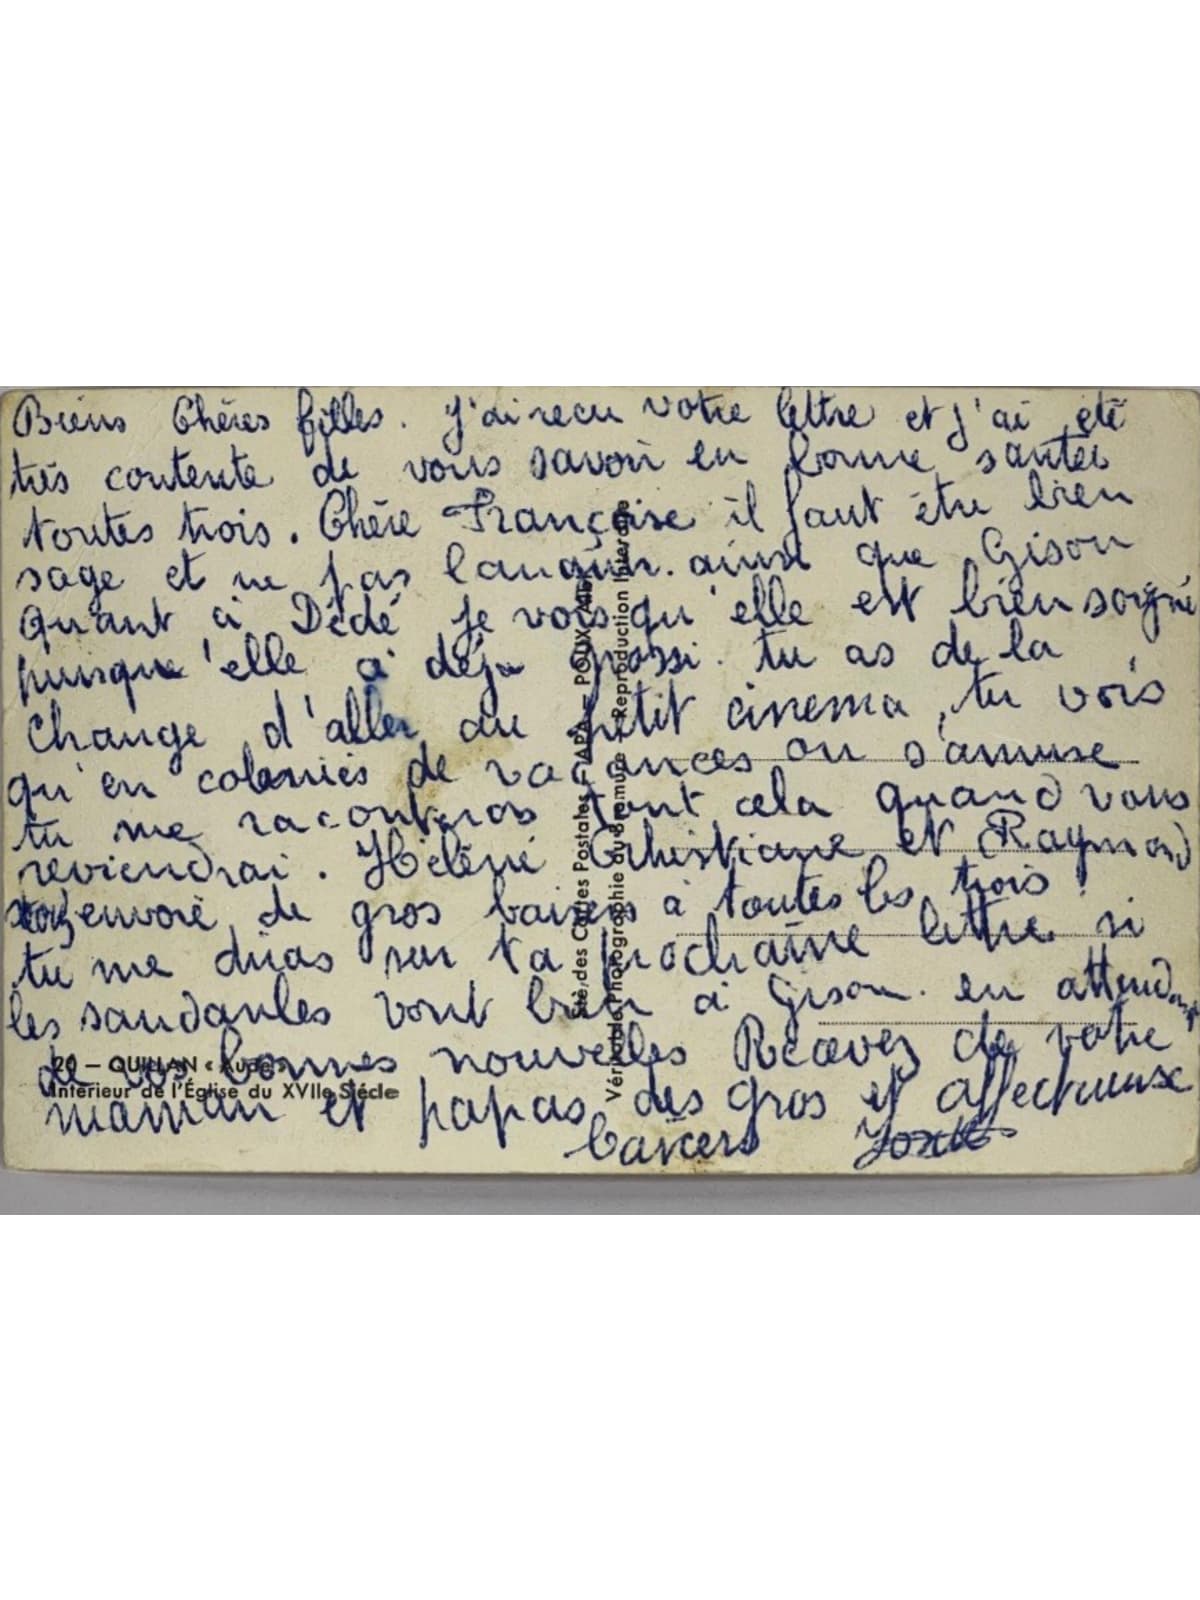 Biens Chéres filles. J'ai recu votre lettre et j'ai été
trés contente de vous savoir en bonne santée
toutes trois. Chére Françoise il faut étre bien
sage et ne pas languir. ainsi que Gison
Quant a Dédé je vois qu'elle est bien soigné
puisque'elle a déja grossi. tu as de la
change d'aller au petit cinema, tu vois
qu'en colonies de vacances on s'amuse
tu me raconteras tout cela quand vous
reviendrai. Héléne Christiane et Raymond
envoie de gros baisers à toutes les trois!
tu me diras sur ta prochaine lettre si
les sandales vont bien a Gison. en attendant
de vos bonnes nouvelles Recevez de votre
maman et papas des gros et affectueuse
baisers
20 — QUILLAN « Aude »
Intérieur de l'Église du XVIIe Siécle
Sté des Cartes Postales « APA — POUX
Véritable Photographie au Bromure - Reproduction Interdite